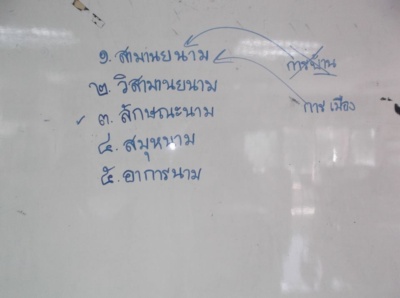 ๑. สามานยนาม
การบ้าน
๒. วิสามานยนาม
การเมือง
๓. ลักษณะนาม
๔. สมุหนาม
๕. อาการนาม